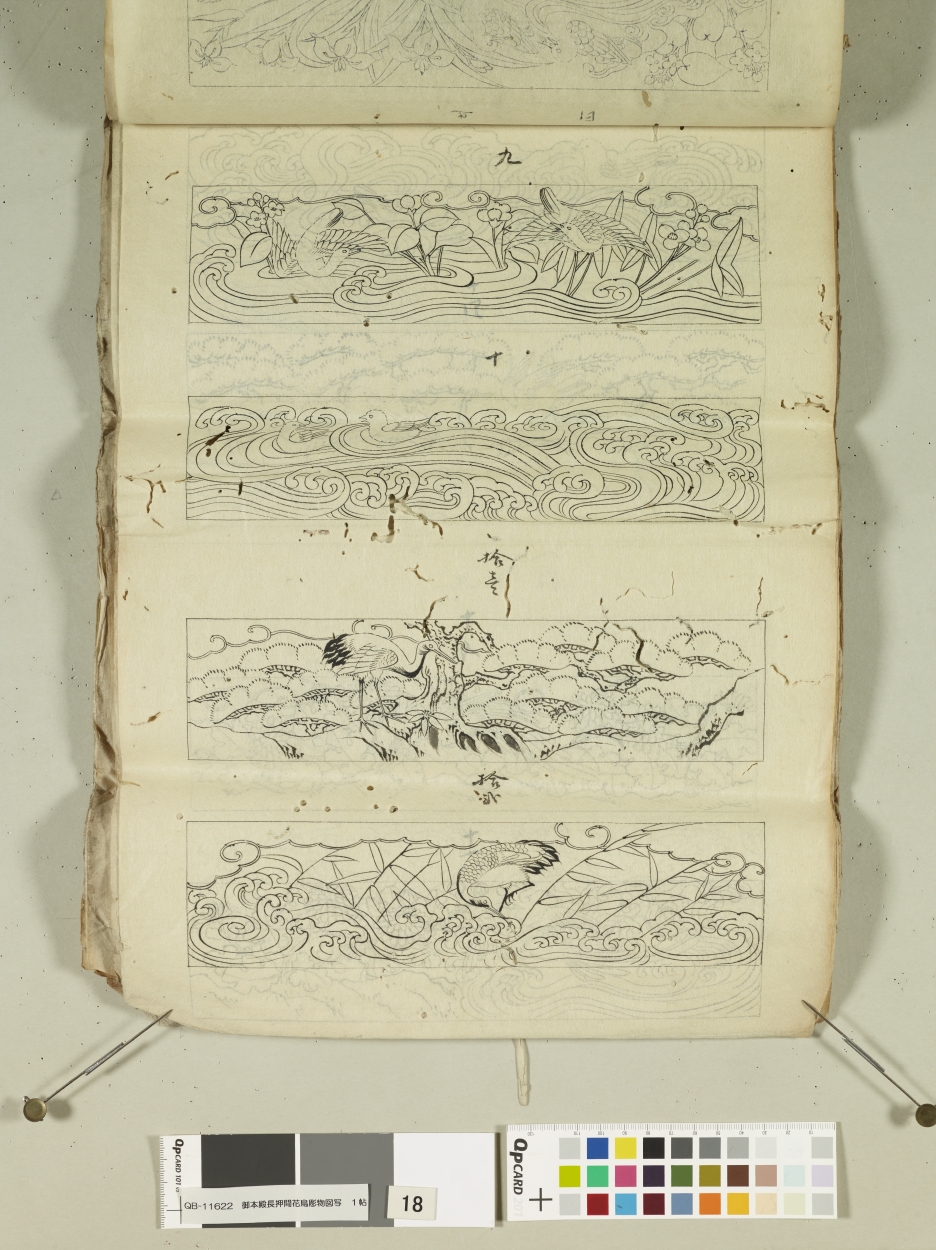 九
十
拾
壹
拾
貳
QPCARD 101 v4
QB-11622 御本殿長押間花鳥彫物図写 1帖
18
QPCARD